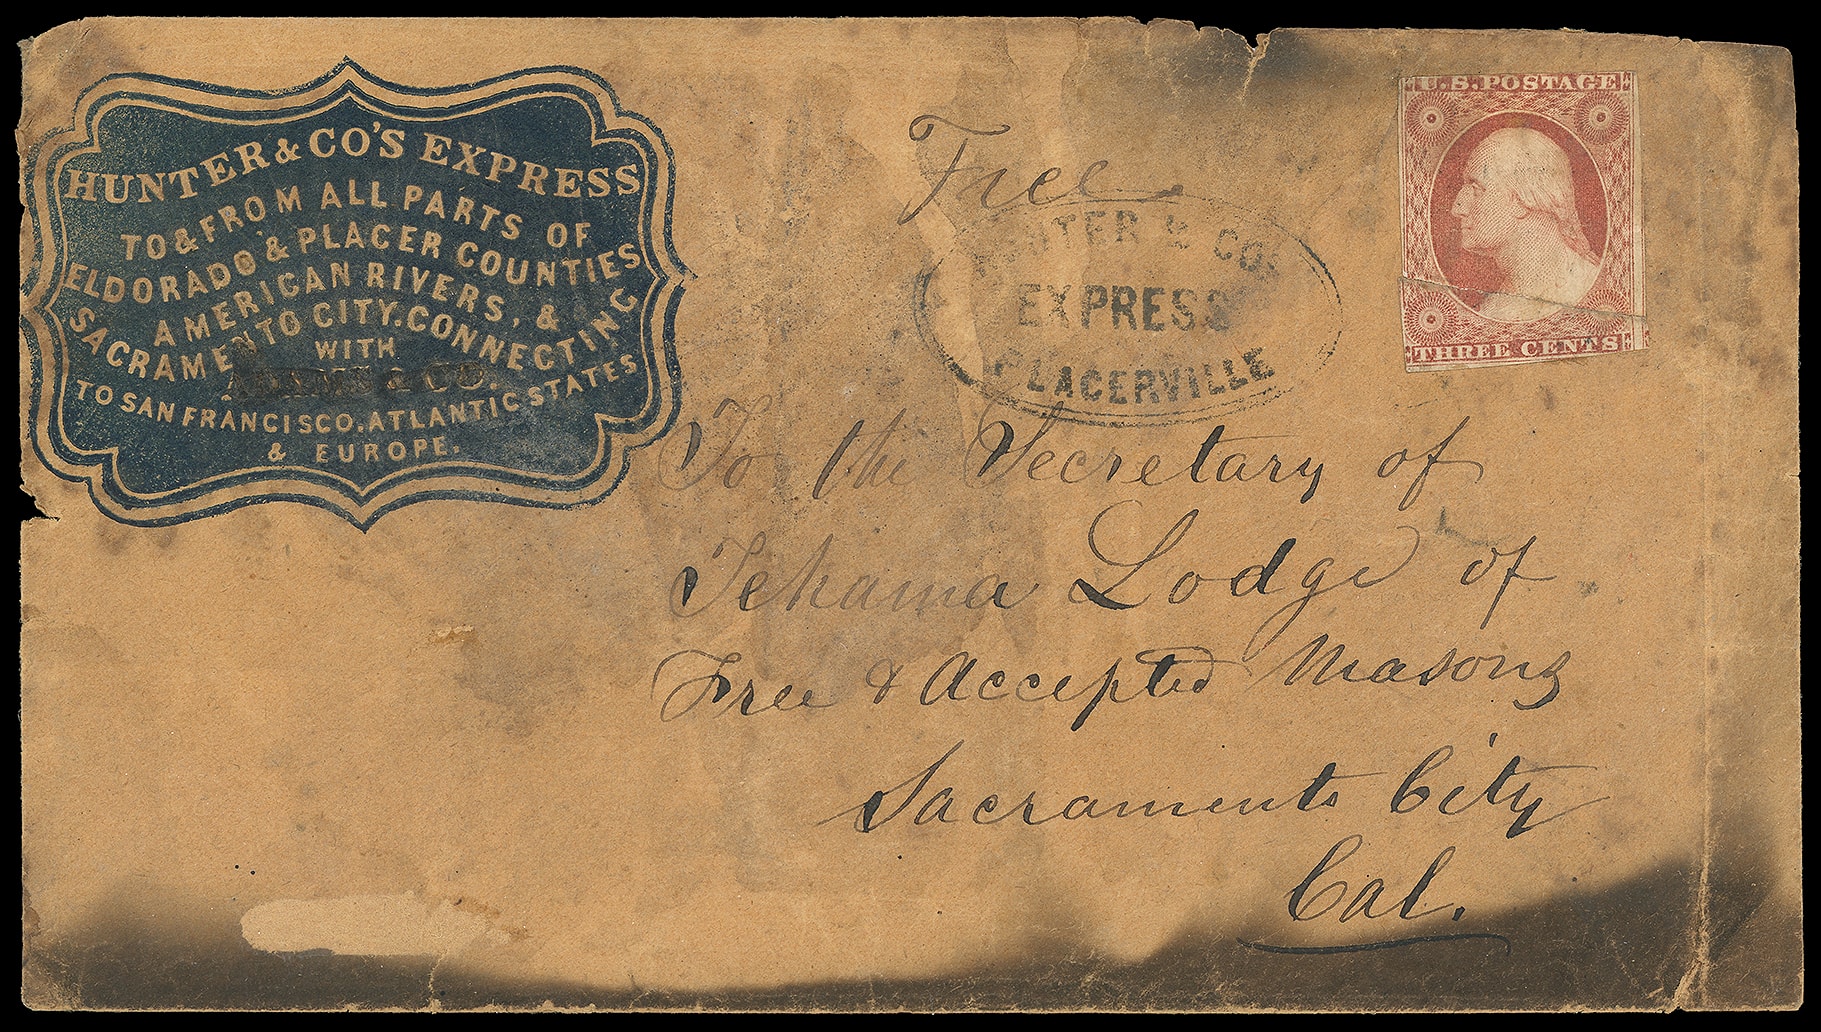 HUNTER & CO'S EXPRESS
TO & FROM ALL PARTS OF
ELDORADO & PLACER COUNTIES
AMERICAN RIVERS, &
SACRAMENTO CITY. CONNECTING
WITH
& CO.
TO SAN FRANCISCO. ATLANTIC STATES
& EUROPE.
Free
HUNTER & CO'S
EXPRESS
PLACERVILLE
U.S. POSTAGE
THREE CENTS
To the Secretary of
Tehama Lodge of
Free & Accepted Masons
Sacramento City
Cal.